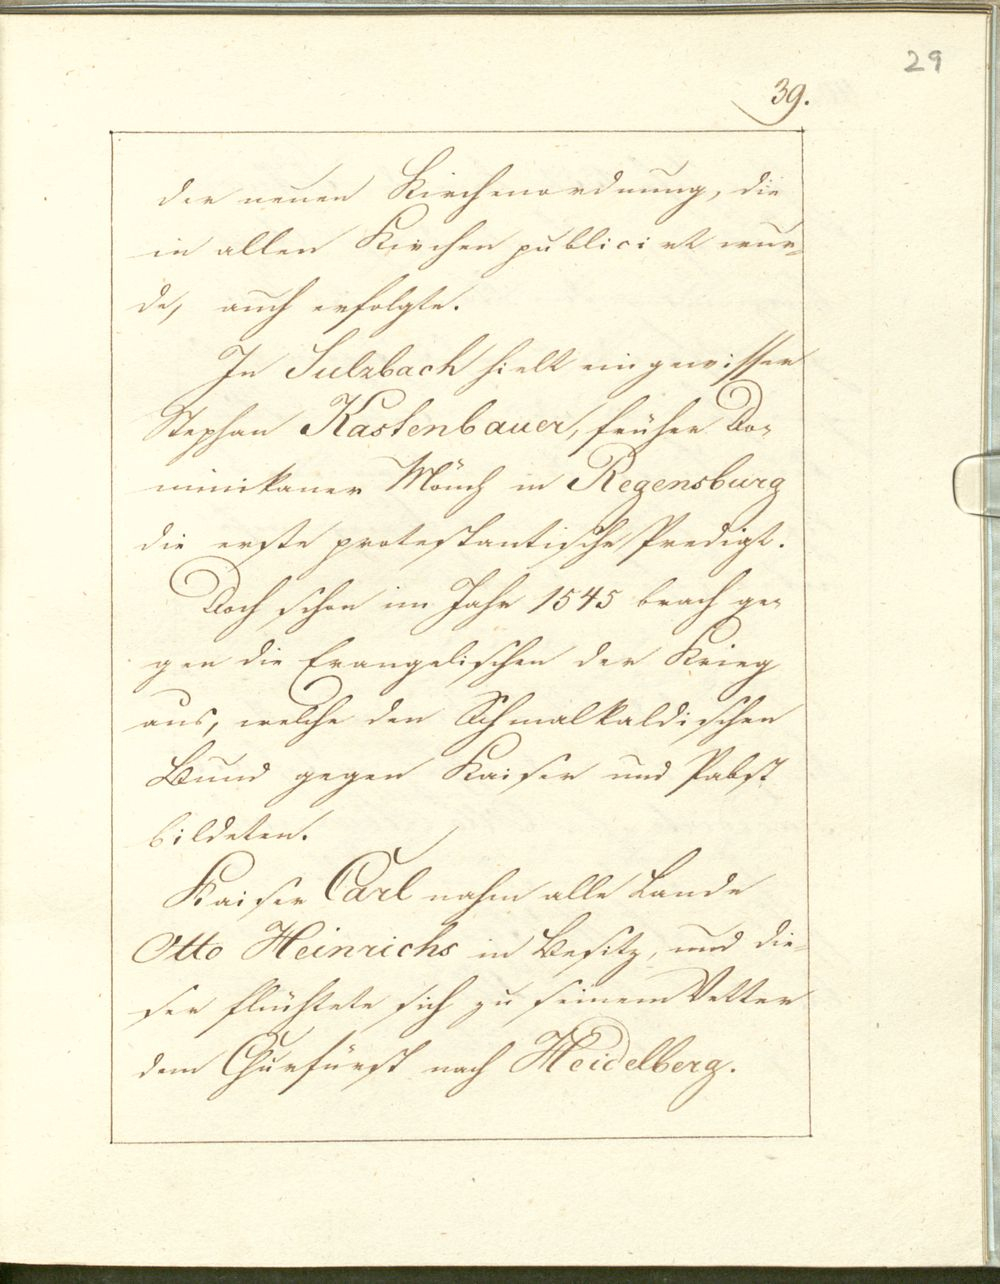 29
39.
der neuen Kirchenordnung, die
in allen Kirchen publicirt wur-
de, auch erfolgte.
In Sulzbach hielt ein gewisser
Stephan Kastenbauer, früher Do-
minikaner Mönch in Regensburg
die erste protestantische Predigt.
Doch schon im Jahr 1545 brach ge-
gen die Evangelischen der Krieg
aus, welche den Schmalkaldischen
Bund gegen Kaiser und Pabst
bildeten.
Kaiser Carl nahm alle Lande
Otto Heinrichs in Besitz, und die-
ser flüchtete sich zu seinem Vetter
dem Churfürst nach Heidelberg.